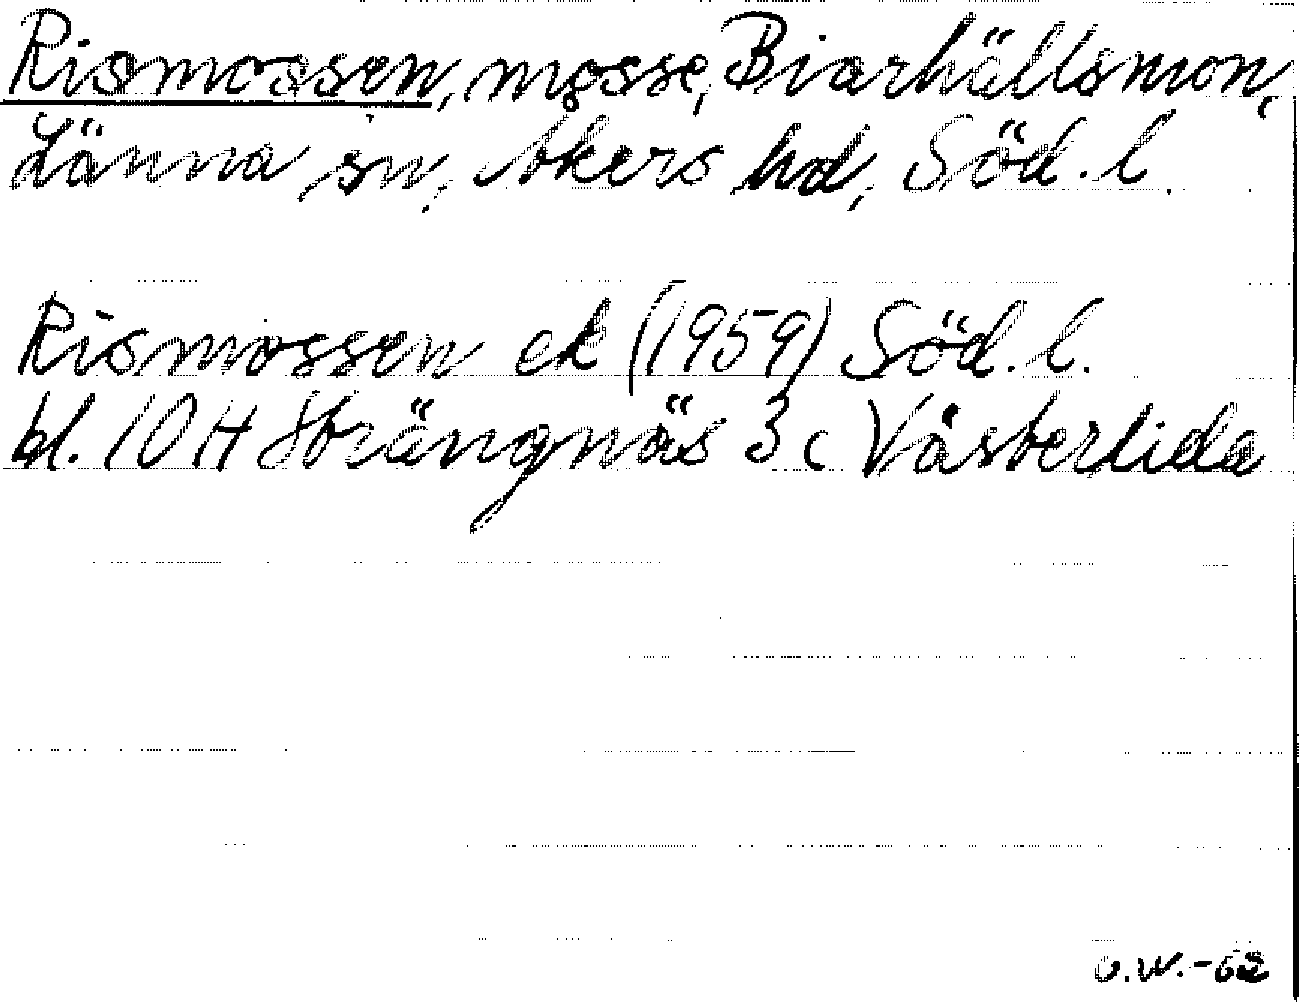 Rismossen, mosse, Biarhällsmon,
Länna sn, Åkers hd, Söd. l.
Rismossen ek (1959) Söd. l.
bl. 10 H Strängnäs 3 c Västerlida
O.W.-62